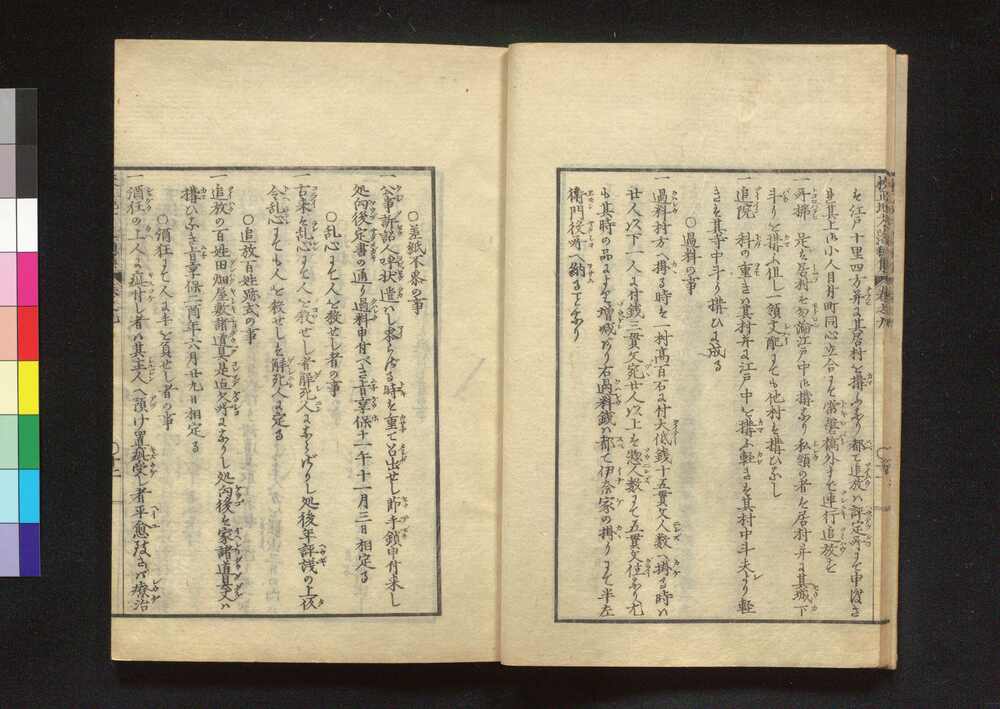 を江戸十里四方并其居村を構ふなり都て追放ハ評定所にて申渡さ
れ其上に小人目付町同心立合にて常盤橋外まで連行追放す
一所払 是を居村を勿論江戸中に構なり私領の者を居村并に其城下
斗りを構ふ但し一領支配にても他村を構ひなし
一追院 科の重きハ其村并に江戸中を構ふ軽きを其村中斗夫より軽
きを其寺中斗り構ひに成る
○過料の事
一過料村方へ掛る時を一村高百石に付大低銭十五貫文人数へ掛る時ハ
廿人以下一人に付銭三貫文宛廿人以上を惣人数にて五貫文位なり尤
も其時の品にて増減あり右過料銭ハ都て伊奈家の掛りにて半左
衛門役所へ納る事なり
○差紙不参の事
一公事訴訟人呼状遣ハし来らざる時を重て召出せし節手鎖申付来し
処向後定書の通り過料申付べき旨享保十一午十一月三日相定る
○乱心にて人を殺せし者の事
一古来を乱心にて人を殺せし者解死人にならざりし処後年評議の上以
今乱心にても人を殺せしを解死人に定る
○追放百姓跡式の事
一追放の百姓田畑屋敷諸道具是迄欠所になりし処向後を家諸道具ハ
構ひなき旨享保二酉年六月廿九日相定る
○酒狂にて人に手を負せし者の事
一酒狂の上人に疵付し者ハ其主人へ預け置疵受し者平愈なさバ療治